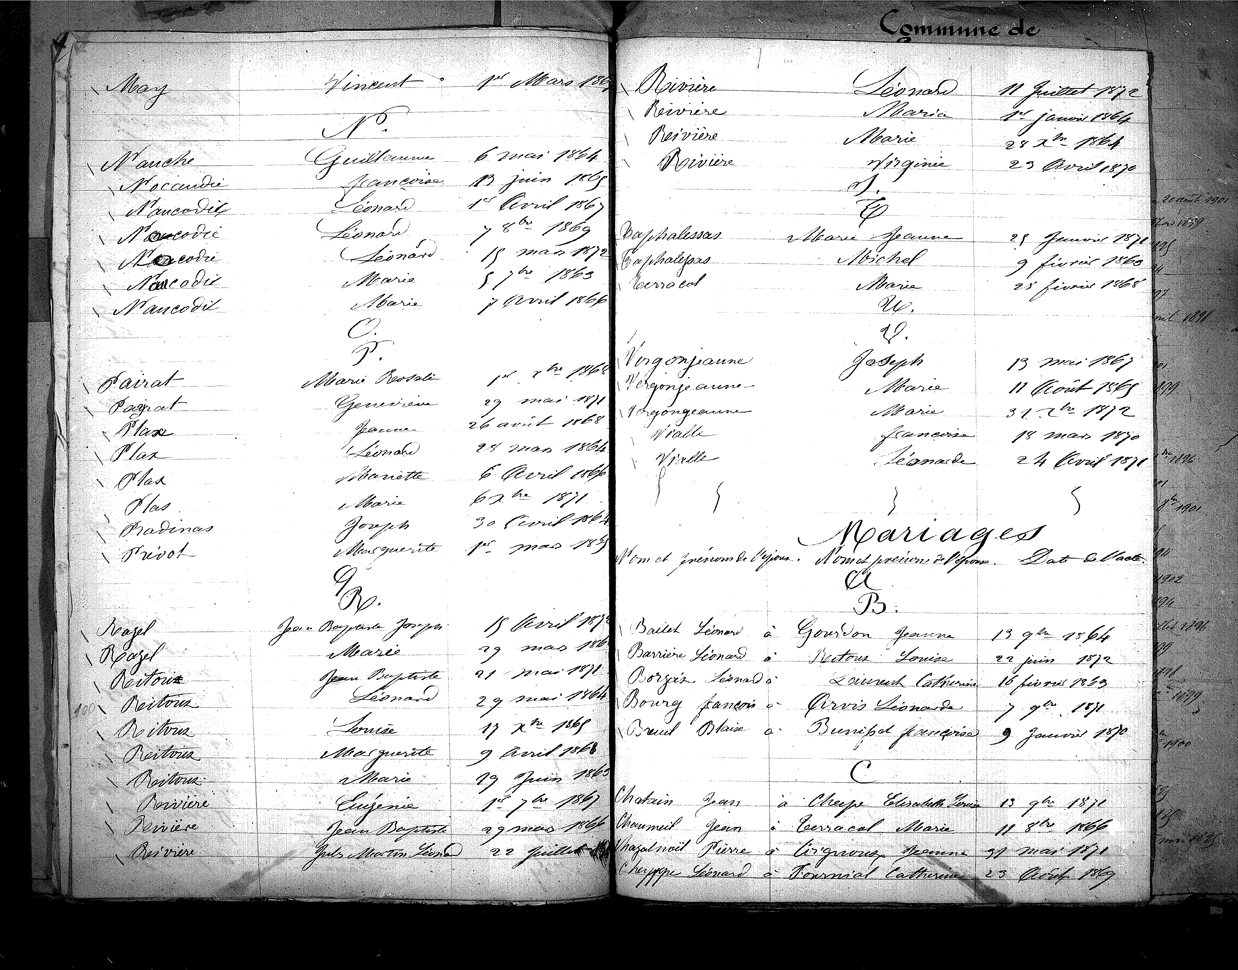 Commune de
May Vincent 1er Mars 186
N.
Nauche Guillaume 6 mai 1864
Nocaudie françoise 13 juin 1865
Naucodie Léonard 1er Avril 1867
Naucodie Léonard 7 8bre 1869
Naucodie Léonard 15 mars 1872
Naucodie Marie 5 7bre 1863
Naucodie Marie 7 Avril 1866
O.
P.
Pairat Marie Rosalie 1er xbre 1868
Payrat Geneviève 29 mai 1871
Plax Jeanne 26 août 1868
Plax Léonard 28 mars 1864
Plax Mariette 6 Avril 1866
Plas Marie 6 xbre 1871
Pradinas Joseph 30 Avril 1864
Prévot Marguerite 1er mars
Q
R.
Razel Jean Baptiste Joseph 15 Avril 1872
Razel Marie 29 mars 186
Reitoux Jean Baptiste 21 mai 1871
100 Reitoux Léonard 29 mai 1864
Reitoux Louise 17 xbre 1865
Reitoux Marguerite 9 Avril 1868
Reitoux Marie 29 Juin 1863
Rivière Eugénie 1er 7bre 1867
Rivière Jean Baptiste 29 mars 1866
Rivière Jules Martin Léonard 22 Juillet
Rivière Léonard 11 Juillet 1872
Rivière Maria 1er janvier 1864
Rivière Marie 28 xbre 1864
Rivière Virginie 23 Avril 1870
S.
T
Taphalessas Marie Jeanne 25 Janvier 1871
Taphalessas Michel 9 février 1863
Terracol Marie 25 février 1868
U.
V.
Vergonjeanne Joseph 13 mai 1867
Vergonjeanne Marie 11 Août 1865
Vergongeanne Marie 31 xbre 1872
Vialle françoise 18 mars 1870
Vialle Léonarde 24 Avril 1871
Mariages
Nom et prénom de l'époux. Nom et prénom de l'épouse. Date de l'acte
A
B.
Ballet Léonard à Gourdon Jeanne 13 9bre 1864
Barrière Léonard à Reitoux Louise 22 juin 1872
Borges Léonard à Laurent Catherine 16 février 1863
Bourg françois à Arvis Léonarde 7 9bre 1871
Breuil Blaise à françoise 9 Janvier 1870
C
Chatain Jean à Cheype Elisabeth Louise 13 9bre 1871
Chaumeil Jean à Terracol Marie 11 8bre 1866
Chazalnoil Pierre à Jeanne 31 mai 1871
Cheyppe Léonard à Fournial Catherine 23 Août 1869